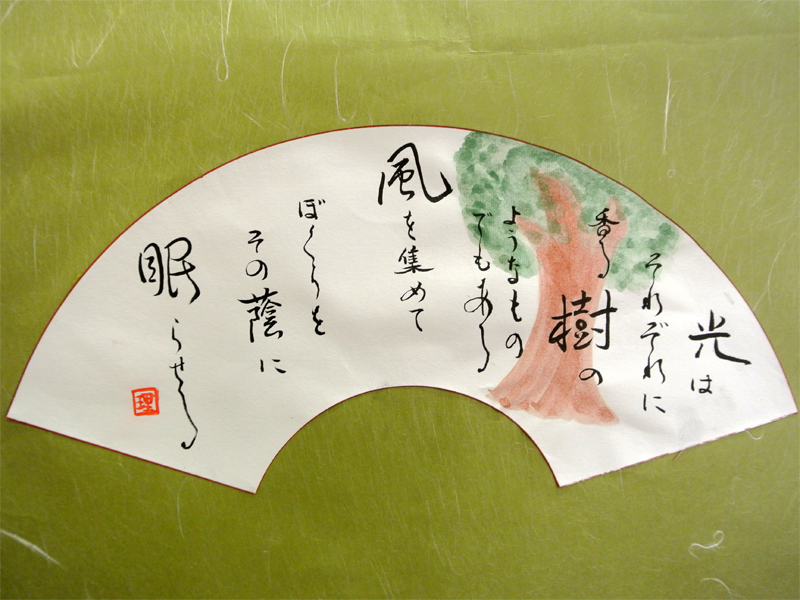 光は
それぞれに
香る
樹の
ようなもの
でもある
風を集めて
ぼくらを
その蔭に
眠らせる
理